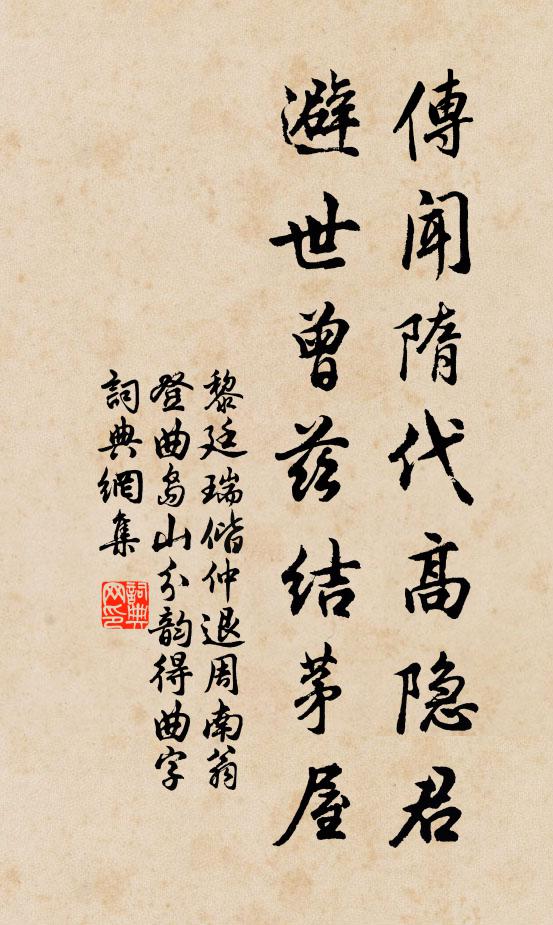 傳聞隋代高隐君
避世曾茲結茅屋
黎廷瑞偕仲退周南翁
登曲岛山分韵得曲字
詞典網集
詞典網印